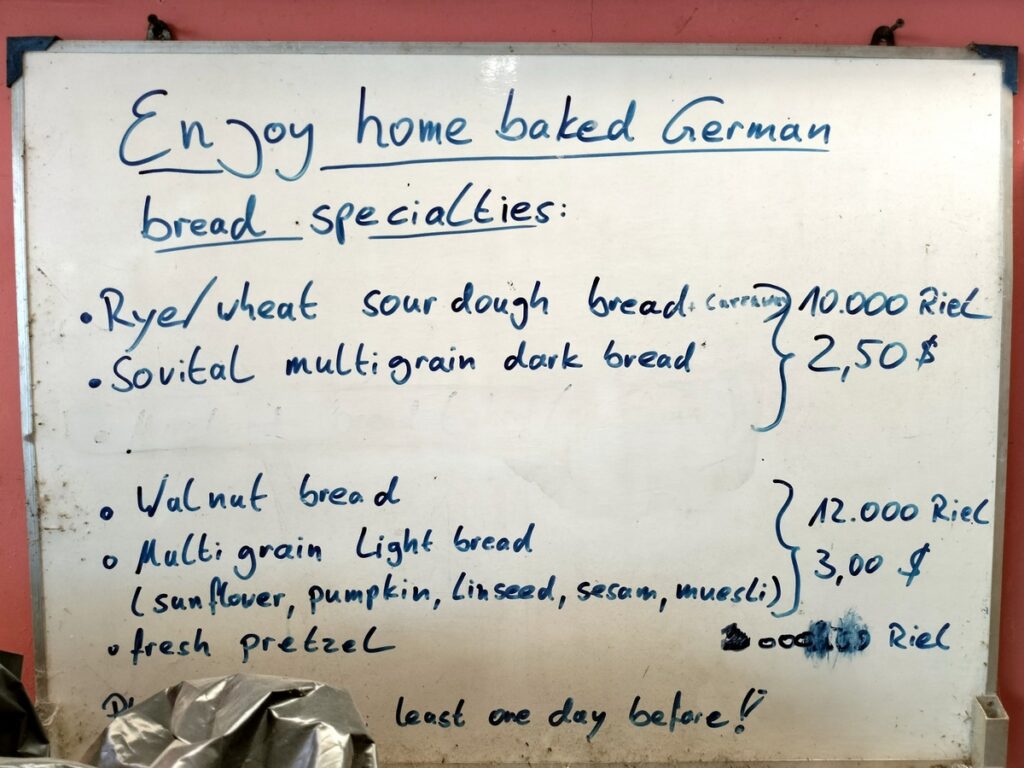 Enjoy home baked German
bread specialties:
• Rye/wheat sourdough bread + Carraway 10.000 Riel
• Sovital multigrain dark bread 2,50 $
• Walnut bread 12.000 Riel
• Multigrain Light bread 3,00 $
(sunflower, pumpkin, linseed, sesam, muesli)
• fresh pretzel Riel
least one day before!